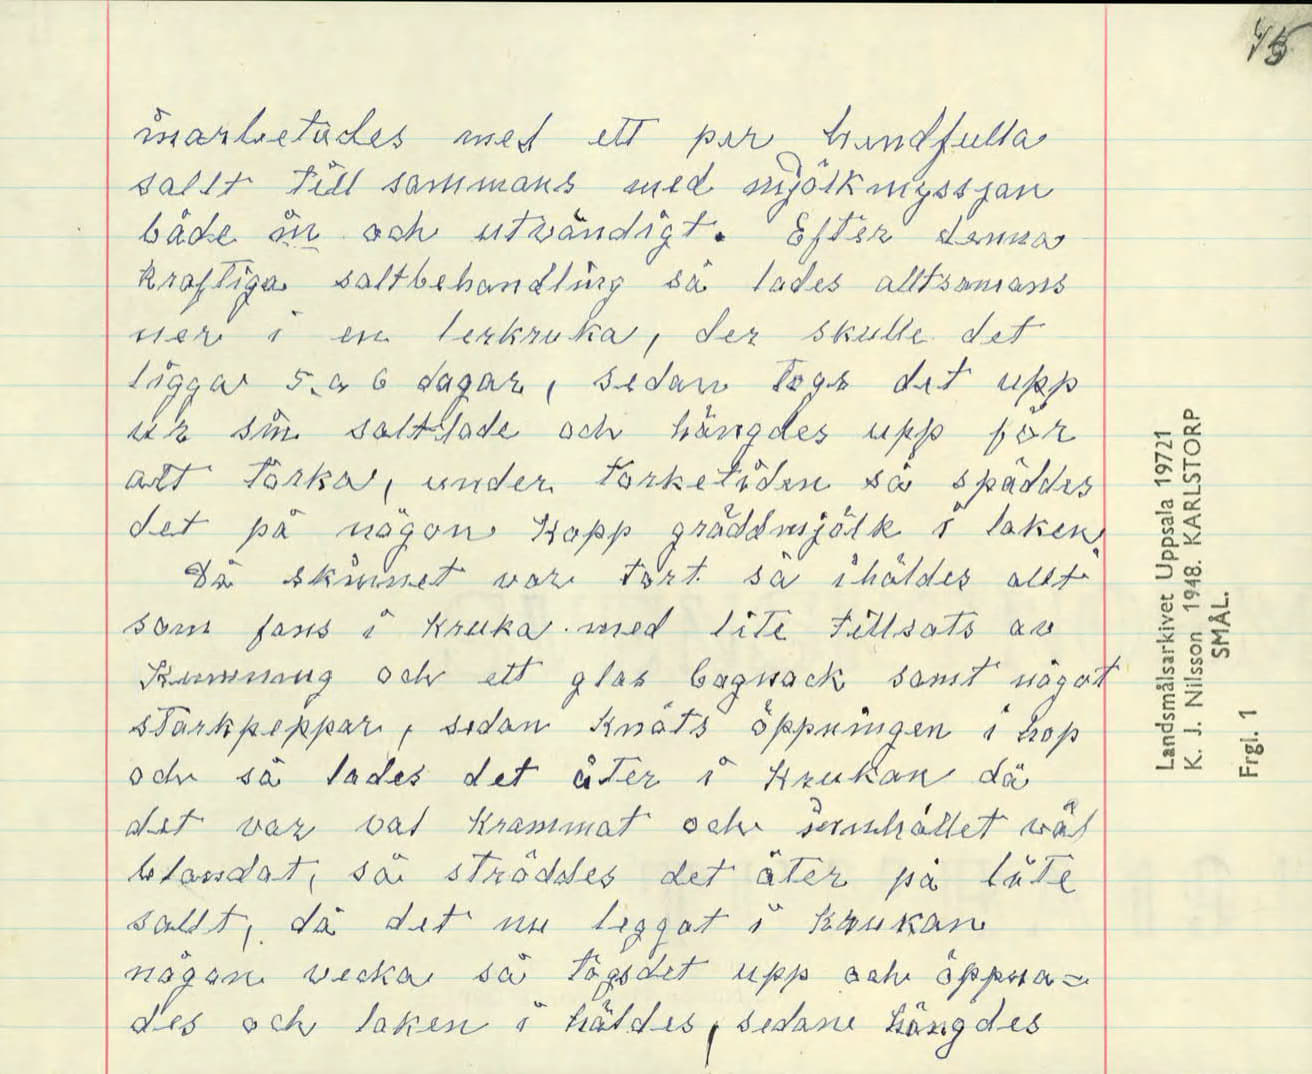 45
inarbetades med ett par hendfulla
sallt till sammans med mjölkmyssjan
både in och utvändigt. Efter denna
kraftiga saltbehandling så lades alltsamans
ner i en lerkruka, der skulle det
ligga 5 a 6 dagar, sedan togs det upp
ur sin saltlade och hängdes upp för
att torka, under torketiden så späddes
det på någon kopp gräddmjölk i laken
Då skinnet var tort så ihäldes allt
som fans i kruka med lite tillsats av
Kummug och ett glas bagnack samt något
starkpeppar, sedan knöts öppningen i hop
och så lades det åter i krukan då
det var val krammat och innhållet väl
blandat, så ströddes det åter på lite
sallt, då det nu leggat i krukan
någon vecka så togs det upp och öppna=
des och laken i häldes, sedane hängdes
Landsmålsarkivet Uppsala 19721
K. J. Nilsson 1948. KARLSTORP
SMÅL.
Frgl. 1